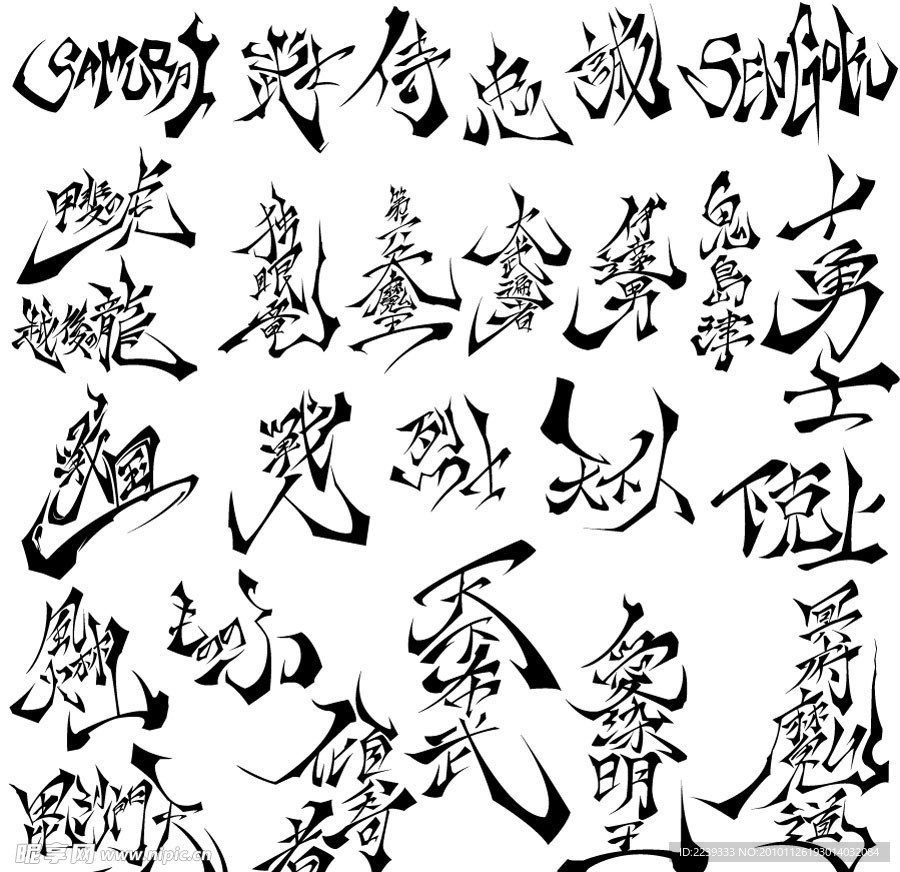 SAMURAI
武士
侍
忠
誠
SENGOKU
甲斐の虎
越後の龍
独眼竜
第六天魔王
大武遍者
伊達男
鬼島津
十勇士
戦国
戦人
烈士
下克上
風林火山
もののふ
天下布武
愛染明王
冥府魔道
毘沙門天
傾奇者
昵享网 www.nipic.cn
ID:2239333 NO:20101126193014032084